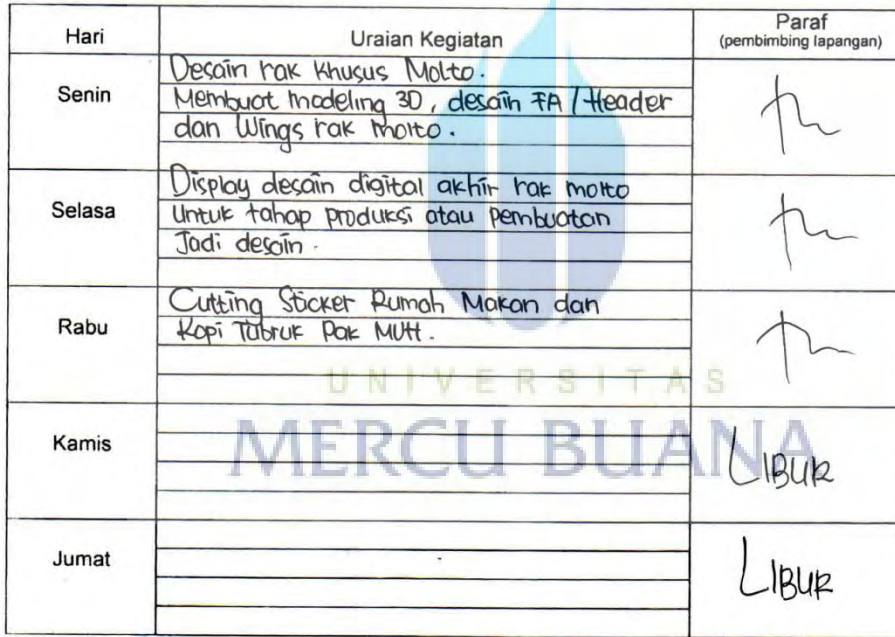 Hari Uraian Kegiatan Paraf
(pembimbing lapangan)
Senin
Desain rak khusus Molto.
Membuat modeling 3D, desain FA / Header
dan Wings rak molto.
Selasa
Display desain digital akhir rak molto
untuk tahap produksi atau pembuatan
Jadi desain.
Rabu
Cutting Sticker Rumah Makan dan
Kopi Tubruk Pak MUH.
UNIVERSITAS
MERCU BUANA
Kamis
LIBUR
Jumat
LIBUR